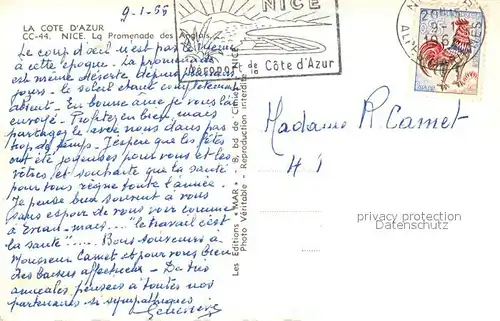 9-1-65
LA COTE D'AZUR
CC-44. NICE. La Promenade des Anglais.
Le coup d'œil n'est pas le même
à cette époque. La promenade
est même déserte depuis plusieurs
jours. le soleil étant complètement
absent. En bonne amie je vous l'ai
envoyé. Profitez en bien, mais
partagez le avec nous dans pas
trop de temps. J'espère que les fêtes
ont été joyeuses pour vous et les
vôtres et souhaite que la santé
pour tous règne toute l'année.
Je pense bien souvent à vous
sans espoir de vous voir comme
à Evian. mais... "le travail c'est
la santé"..... Bons souvenirs à
Monsieur Camet et pour vous bien
des baisers affectueux. De très
amicales pensées à toutes nos
partenaires si sympathiques
Geneviève
Les Editions " MAR " - 8, bd de Cimiez - NICE
Photo Véritable - Reproduction interdite
NICE
Reconnue de la Côte d'Azur
Madame R. Camet
41
plagiatorisk protection
Datenschutz